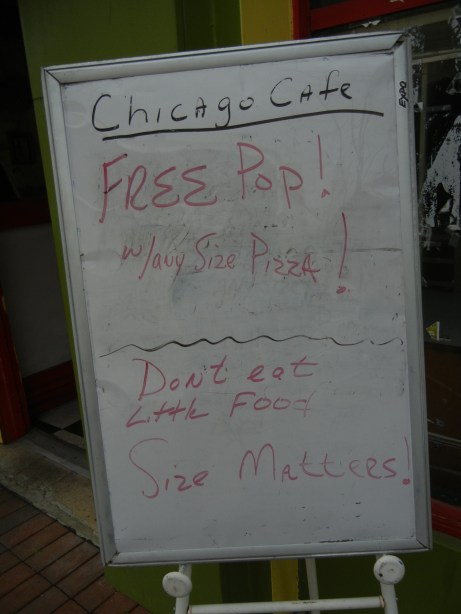 Chicago Cafe
EXPO
FREE Pop!
w/any Size Pizza!
Don't eat
Little Food
Size Matters!